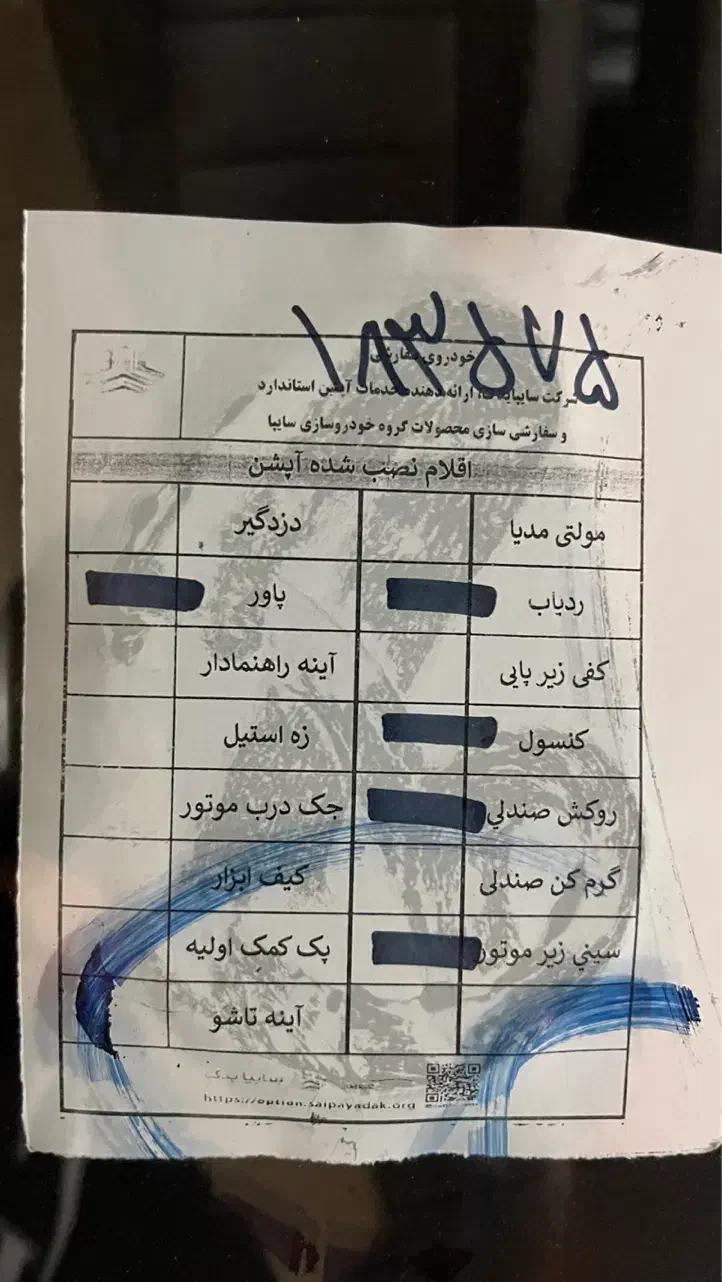 ۱۸۳۵۷۵
خودروی سفارشی
شرکت سایپایدک، ارائه‌دهنده خدمات آپشن استاندارد
و سفارشی سازی محصولات گروه خودروسازی سایپا
اقلام نصب شده آپشن
مولتی مدیا دزدگیر
ردیاب پاور
کفی زیر پایی آینه راهنمادار
کنسول زه استیل
روکش صندلي جک درب موتور
گرم کن صندلی کیف ابزار
سيني زير موتور پک کمک اولیه
آینه تاشو
سایپا یدک
https://option.saipayadak.org